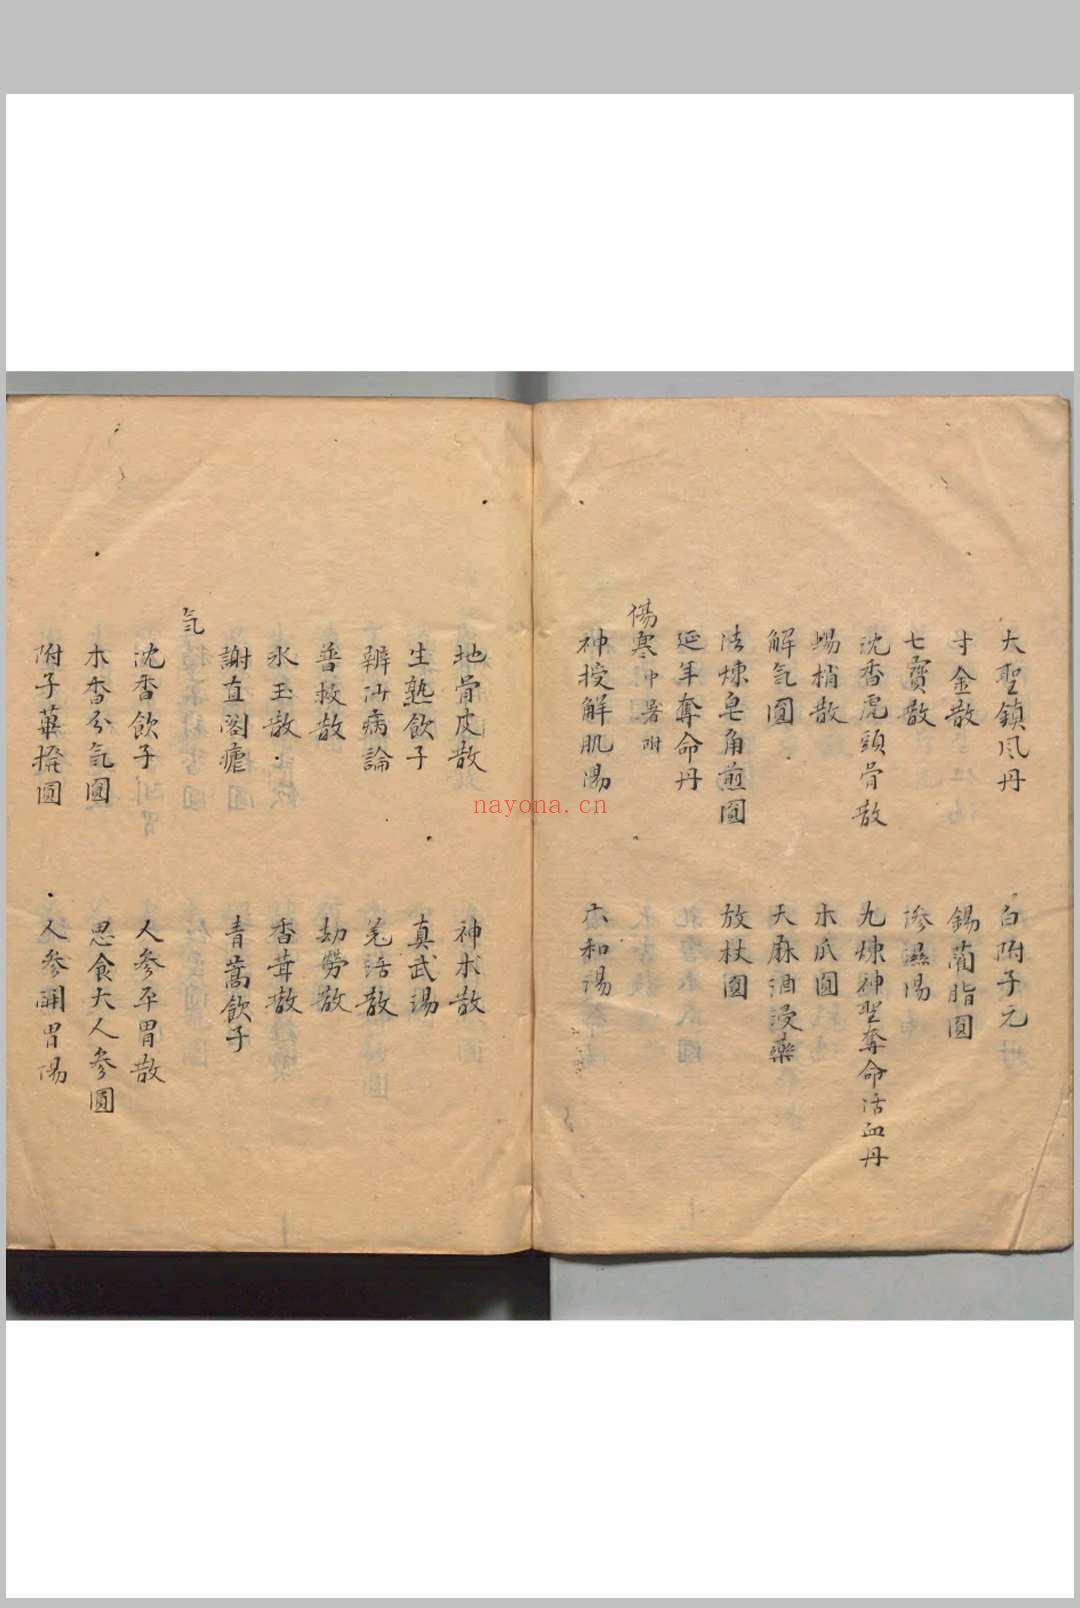 大聖鎮风丹 白附子元
寸金散 錫藺脂圓
七寶散 滲濕湯
沈香虎頭骨散 九煉神聖奪命活血丹
蝎梢散 木瓜圓
解气圓 天麻酒浸藥
法煉皂角煎圓 放杖圓
延年奪命丹
傷寒中暑附
神授解肌湯 六和湯
地骨皮散 神术散
生熟飲子 真武湯
辨㳂病論 羌活散
普救散 劫勞散
氷玉散 香茸散
謝直閣瘧 青蒿飲子
气
沈香飲子 人參平胃散
木香分氣圓 思食大人參圓
附子蓽撥圓 人參開胃湯
nayona.cn